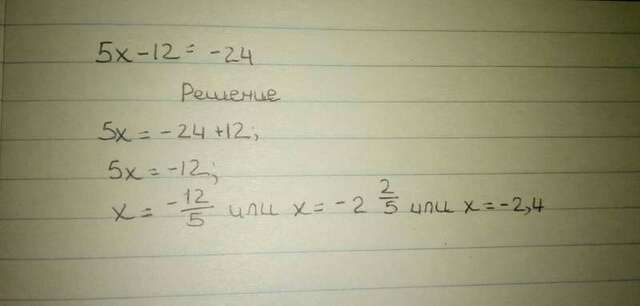 5x - 12 = -24
Решение
5x = -24 + 12;
5x = -12;
x = -12/5 или x = -2 2/5 или x = -2,4